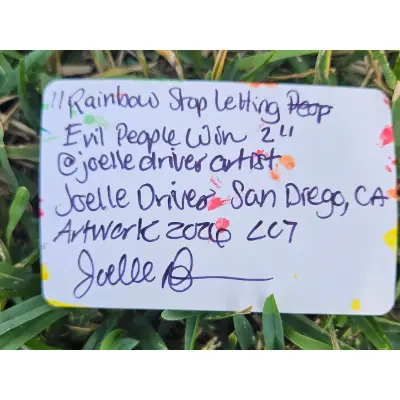 "Rainbow Stop Letting Peop
Evil People Win 2"
@joelledriverartist
Joelle Driver San Diego, CA
Artwork 2026 LC7
Joelle D